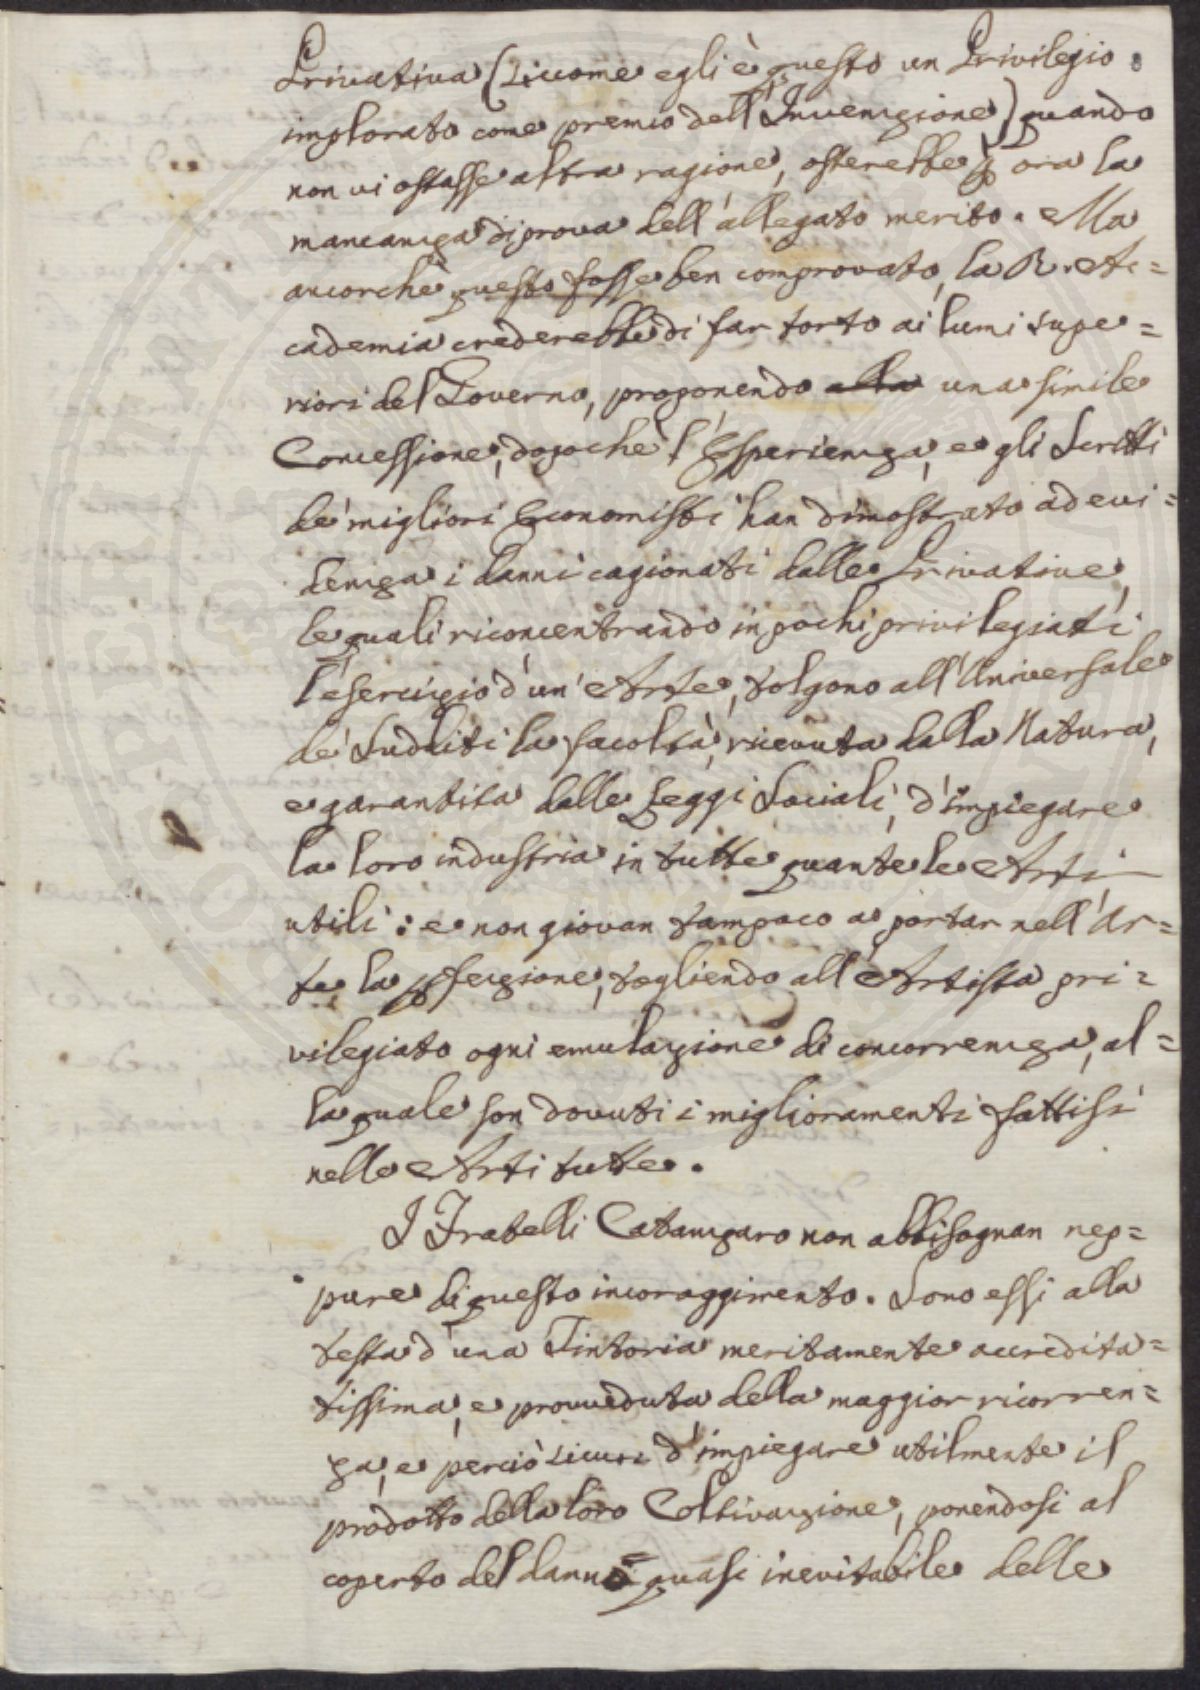 Privativa (siccome egli è questo un Privilegio
implorato come premio dell'Invenzione) quando
non vi ostasse altra ragione, osterebbe p ora la
mancanza di prova dell'allegato merito. Ma
ancorchè questo fosse ben comprovato, la R. Ac=
cademia crederebbe di far torto ai lumi supe=
riori del Governo, proponendo alla una simile
Concessione, dopochè l'Esperienza, e gli Scritti
de' migliori Economisti han dimostrato ad evi=
denza i danni cagionati dalle Privative,
le quali riconcentrando in pochi privilegiati
l'esercizio d'un'Arte, tolgono all'Universale
de' Sudditi la facoltà, ricevuta dalla Natura,
e garantita dalle Leggi Sociali, d'impiegare
la loro industria in tutte quante le Arti
utili: e non giovan tampoco a portar nell'Ar=
te la pfezione, togliendo all'Artista pri=
vilegiato ogni emulazione di concorrenza, al=
la quale son dovuti i miglioramenti fattisi
nelle Arti tutte.
I Fratelli Catanzaro non abbisognan nep=
pure di questo incoraggimento. Sono essi alla
testa d'una Tintoria meritamente accredita=
tissima, e provveduta della maggior ricorren=
za, e perciò sicuri d'impiegare utilmente il
prodotto della loro Coltivazione, ponendosi al
coperto del danno quasi inevitabile delle